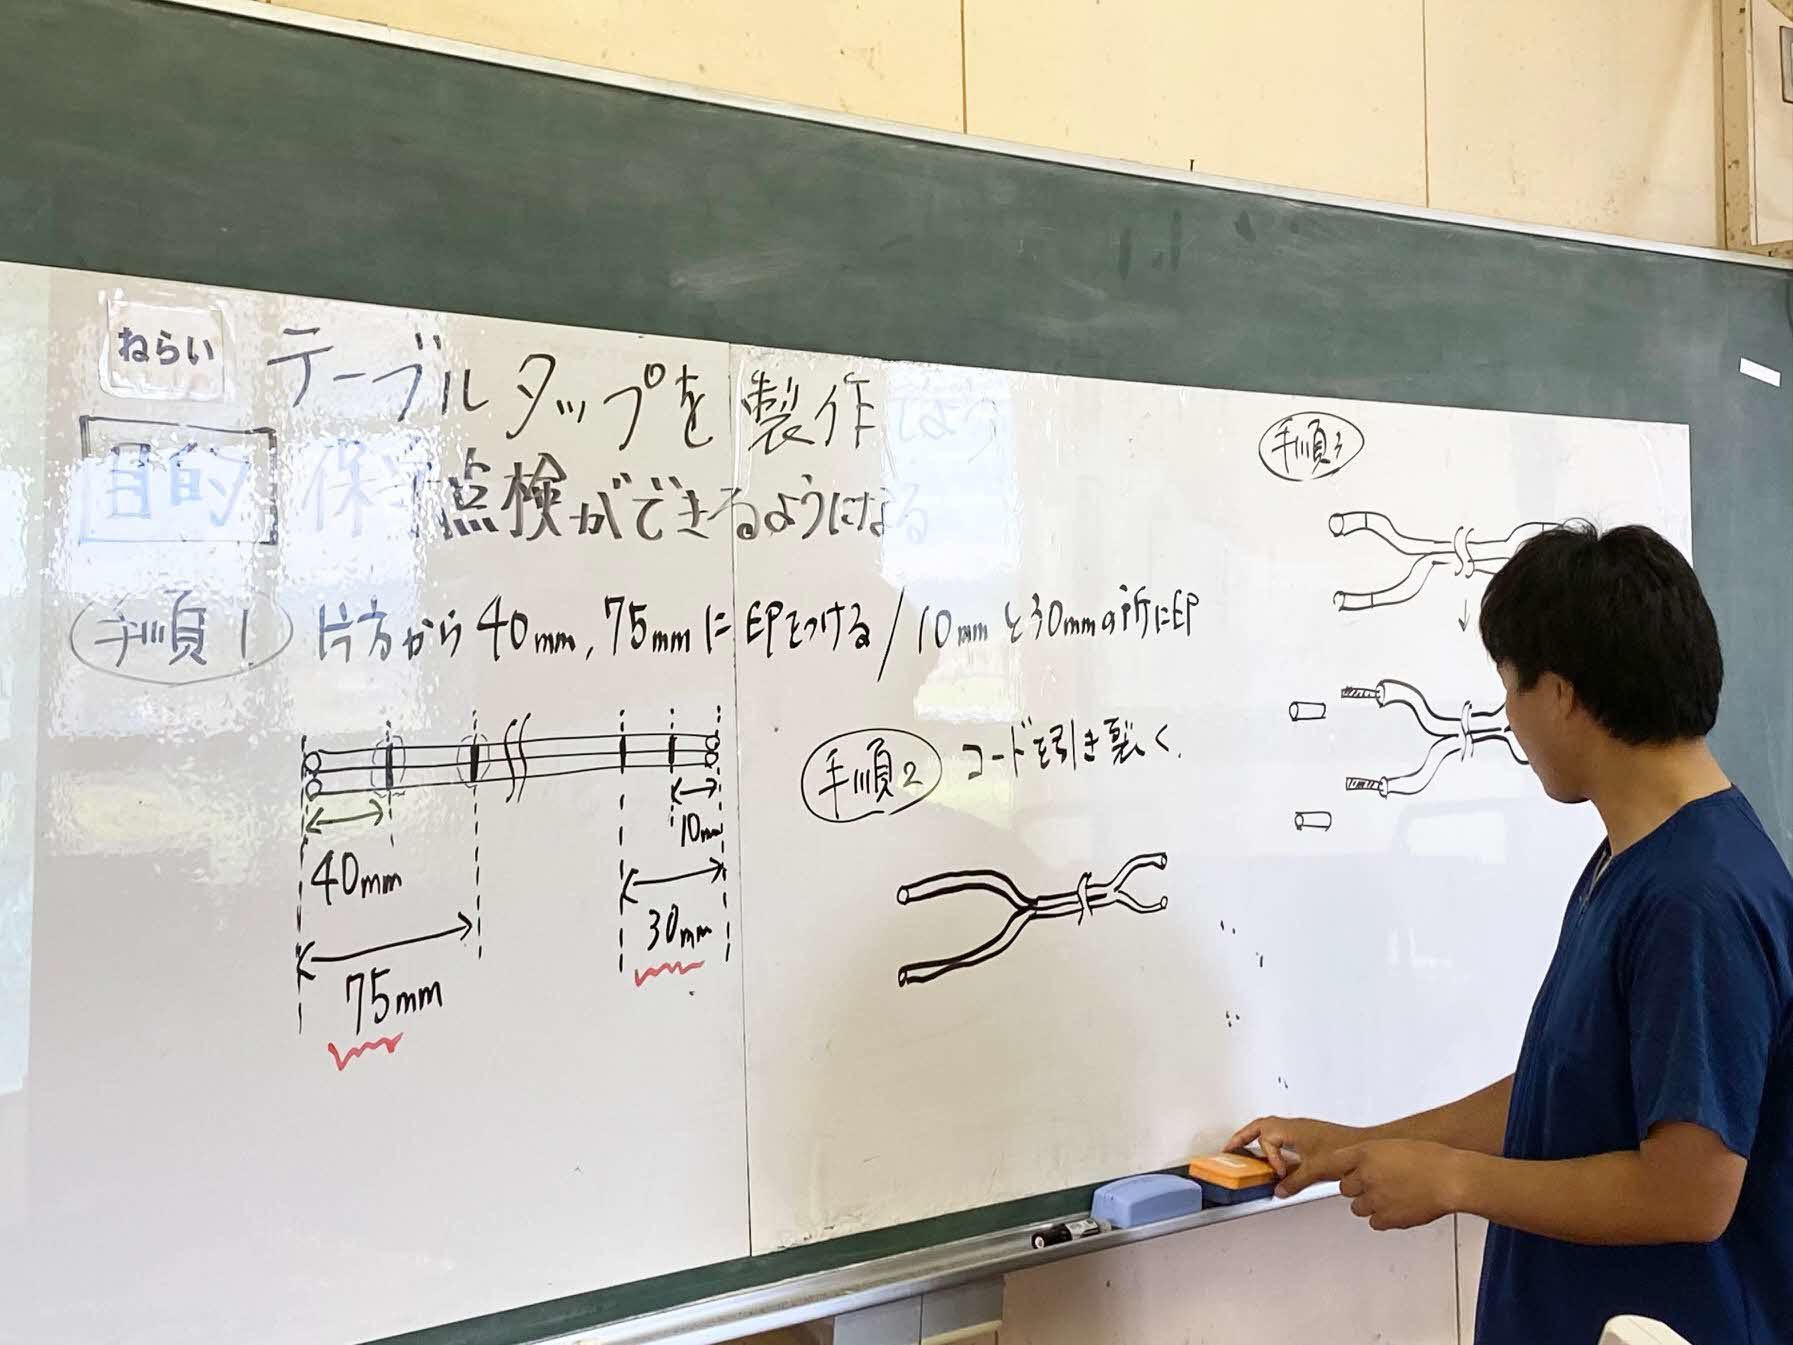 ねらい
テーブルタップを製作
目的
保守点検ができるようになる
手順1
片方から40mm, 75mmに印をつける/10mmと30mmの所に印
40mm
75mm
10mm
30mm
手順2
コードを引き裂く
手順3